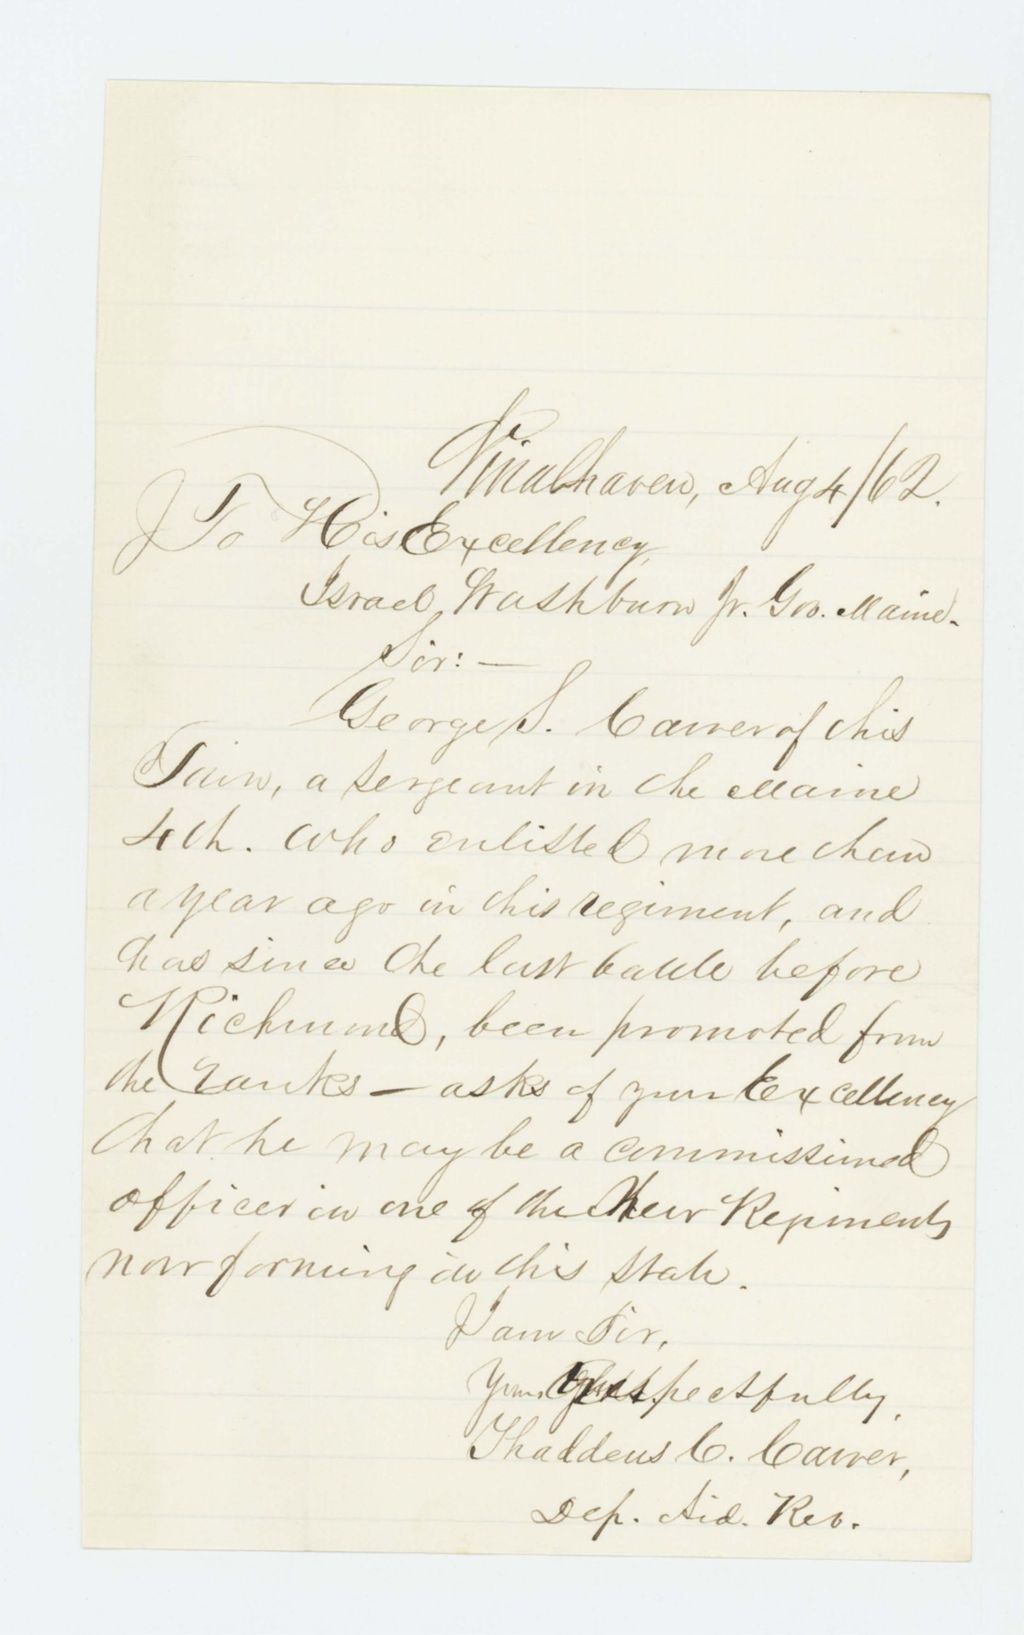 Vinalhaven, Aug 4/62.
To His Excellency,
Israel Washburn Jr. Gov. Maine.
Sir: —
George S. Carver of this
Town, a sergeant in the Maine
4th. who enlisted more than
a year ago in this regiment, and
has since the last battle before
Richmond, been promoted from
the ranks — asks of your Excellency
that he may be a commissioned
officer in one of the New Regiments
now forming in this State.
I am Sir,
Yours Respectfully,
Thaddeus C. Carver,
Dep. Aid. Rev.